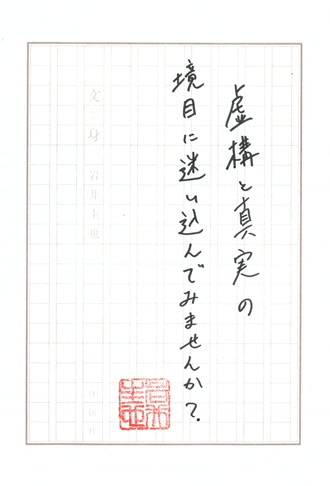 虚構と真実の
境目に迷い込んでみませんか?
文身 岩井圭也